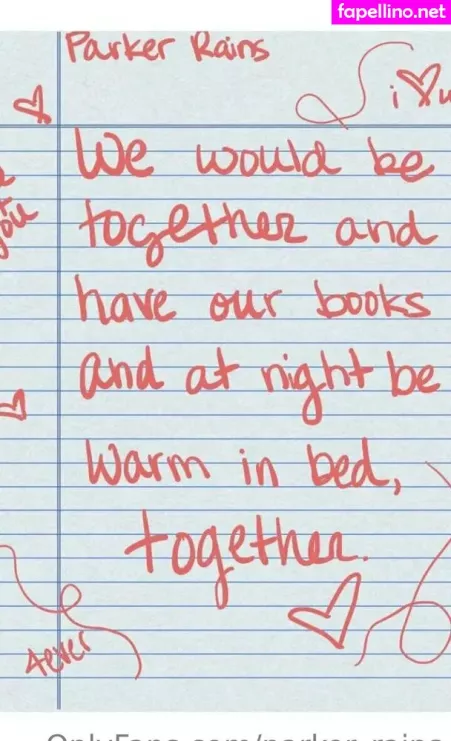 fapellino.net
Parker Rains
i ♡ u
We would be
you
together and
have our books
and at night be
warm in bed,
together.
4ever
OnlyFans.com/parker-rains